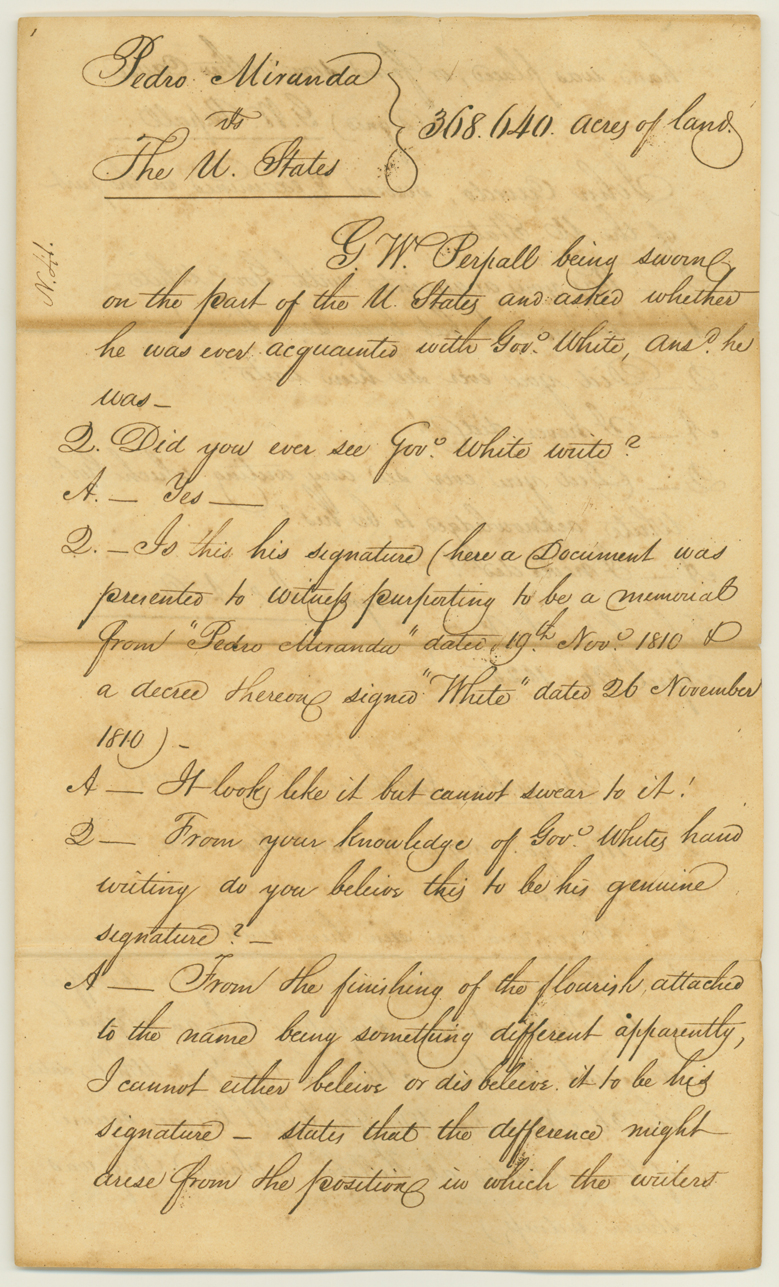 Pedro Miranda
vs
The U. States
368.640. acres of land.
N. 41.
G W. Perpall being sworn
on the part of the U. States and asked whether
he was ever acquainted with Govr. White, ansd. he
was –
Q. Did you ever see Govr. White write?
A. – Yes –
Q. – Is this his signature (here a Document was
presented to witness purporting to be a memorial
from "Pedro Miranda" dated, 19th Novr. 1810 &
a decree thereon signed "White" dated 26 November
1810) –
A – It looks like it but cannot swear to it!
Q – From your knowledge of Govr. Whites hand
writing do you beleive this to be his genuine
signature? –
A – From the finishing of the flourish attached
to the name being something different apparently,
I cannot either beleive or disbeleive it to be his
signature – states that the difference might
arise from the position in which the writers